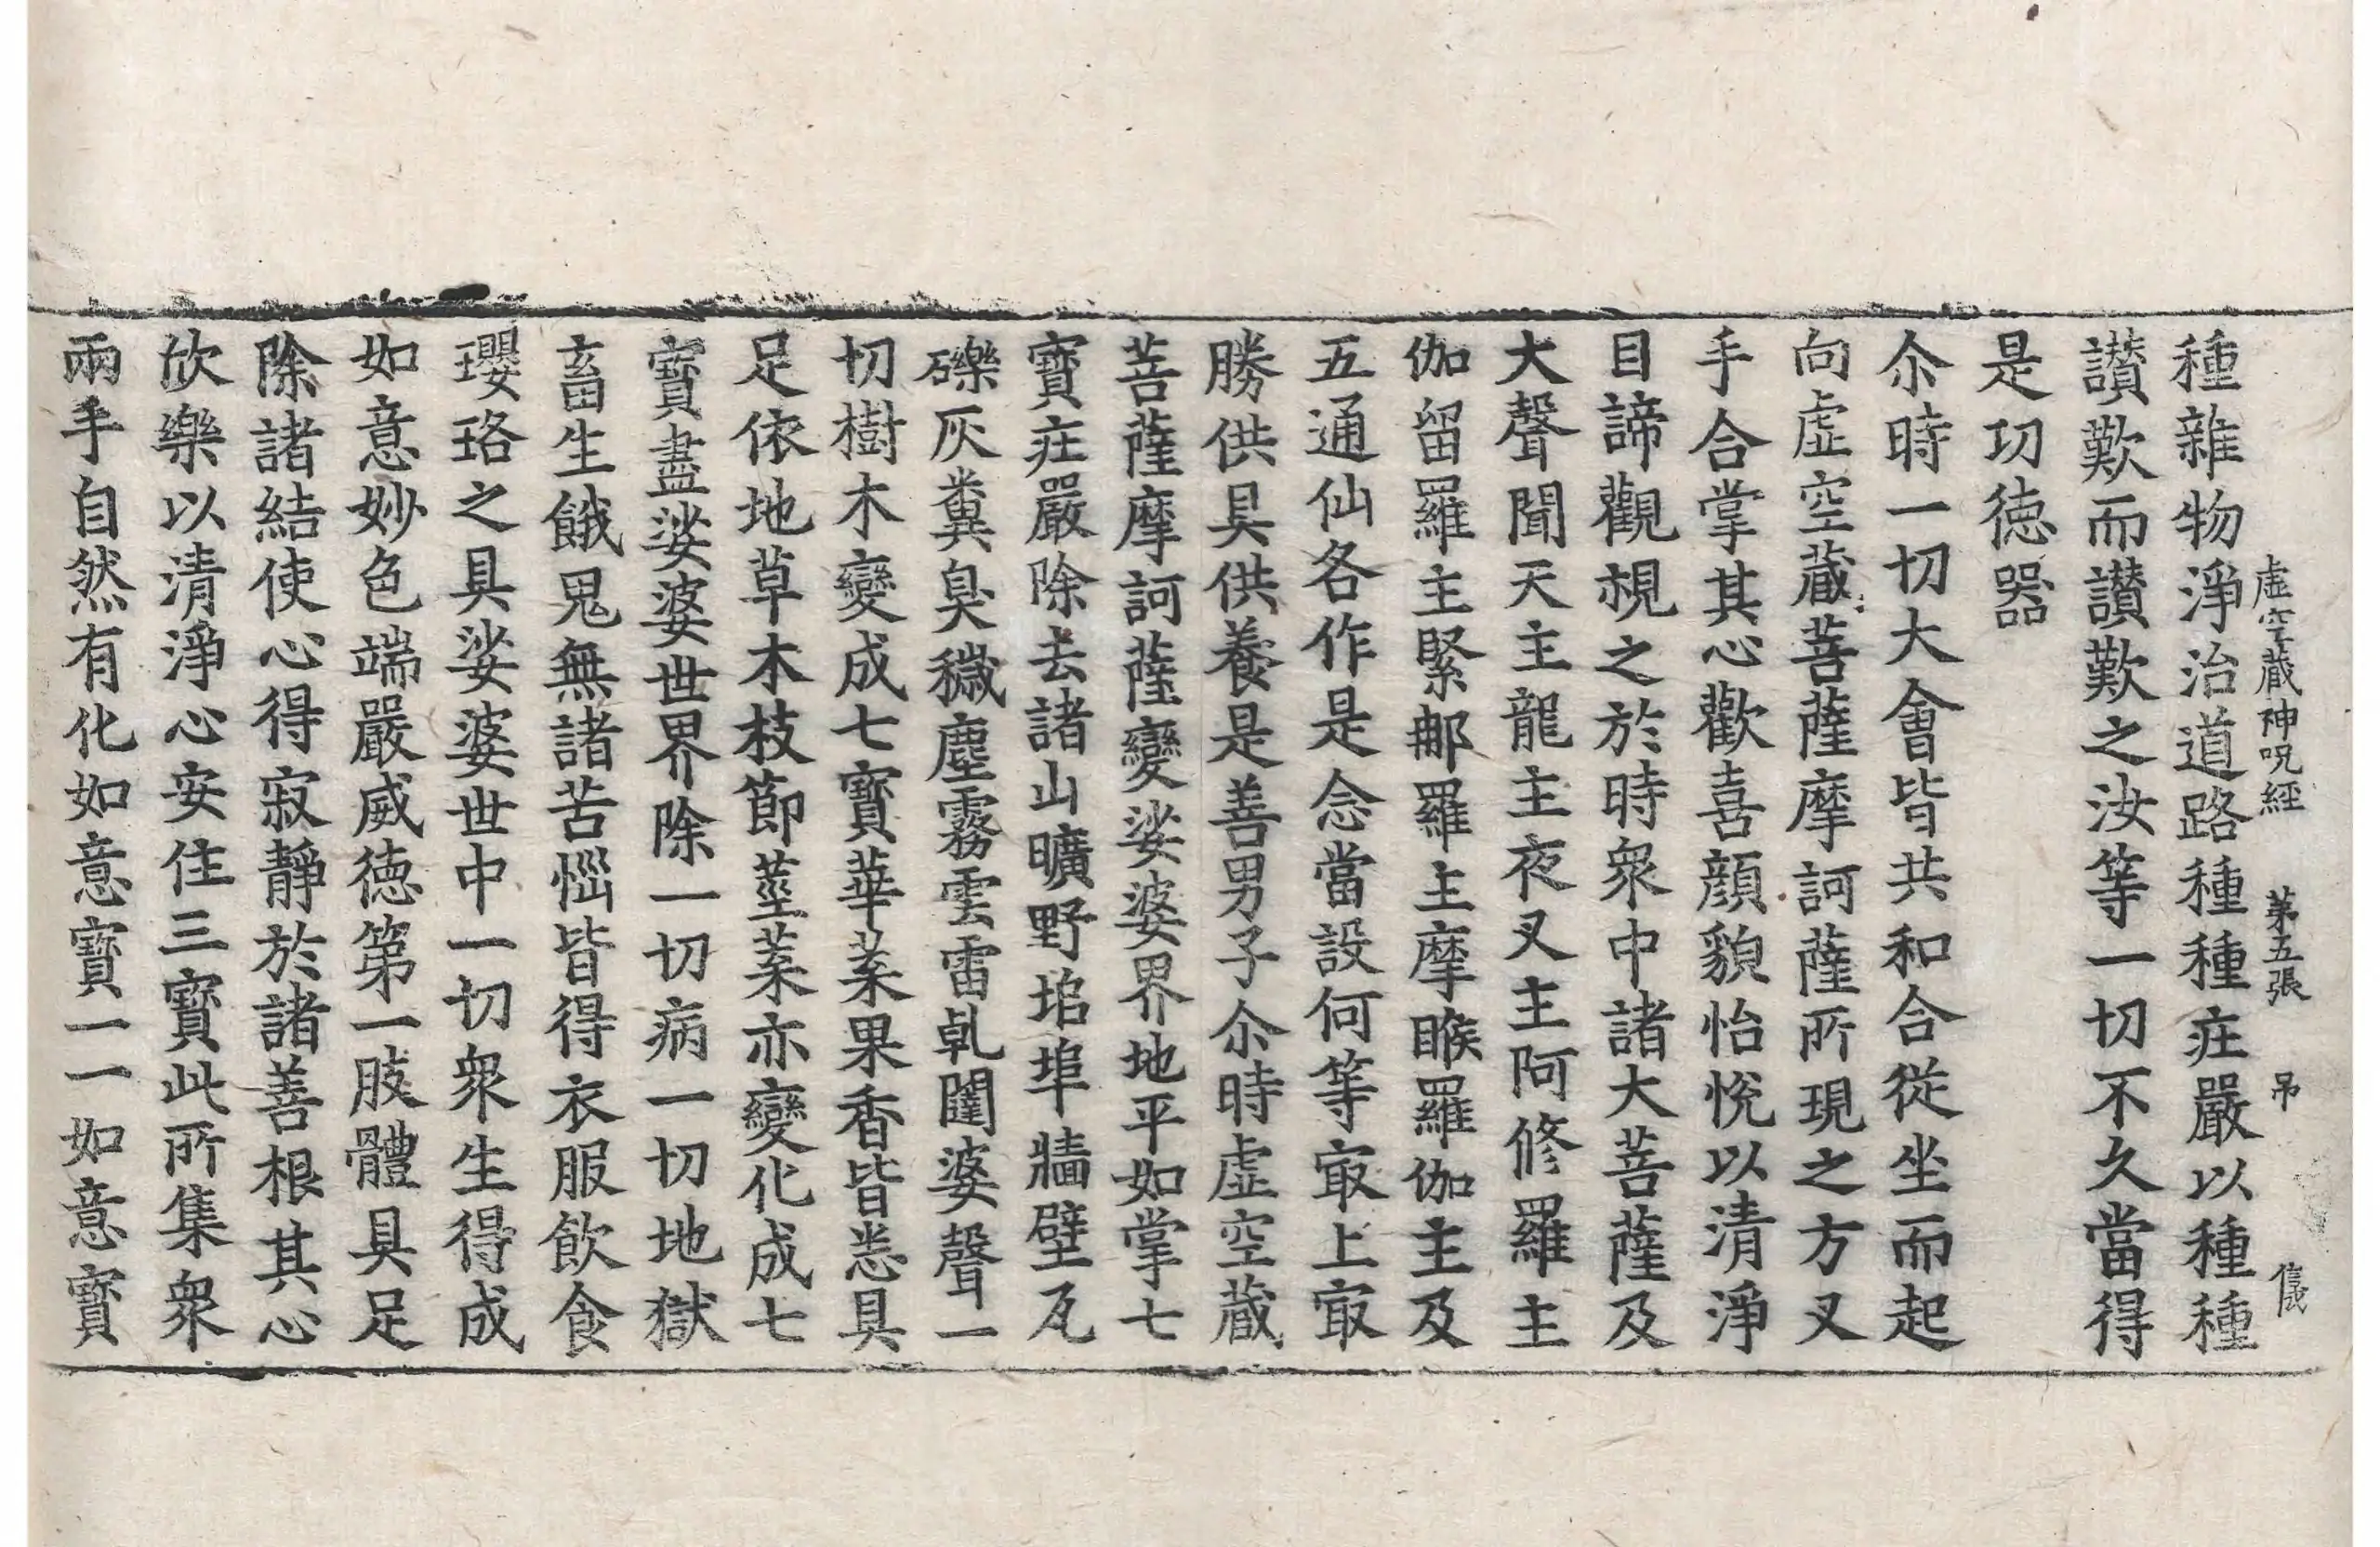 虛空藏神呪經　第五張　吊　儀
種雜物淨治道路種種庄嚴以種種
讃歎而讃歎之汝等一切不久當得
是切徳器
尒時一切大會皆共和合從坐而起
向虛空藏菩薩摩訶薩所現之方叉
手合掌其心歡喜顔貌怡悅以清淨
目諦觀視之於時衆中諸大菩薩及
大聲聞天主龍主夜叉主阿修羅主
伽留羅主緊郍羅主摩睺羅伽主及
五通仙各作是念當設何等㝡上㝡
勝供具供養是善男子尒時虛空藏
菩薩摩訶薩變娑婆界地平如掌七
寶庄嚴除去諸山曠野塠埠牆壁瓦
礫灰糞臭穢塵霧雲雷乹闥婆聲一
切樹木變成七寶華菓果香皆悉具
足依地草木枝節莖菓亦變化成七
寶盡娑婆世界除一切病一切地獄
畜生餓鬼無諸苦惱皆得衣服飲食
瓔珞之具娑婆世中一切衆生得成
如意妙色端嚴威徳第一肢體具足
除諸結使心得寂靜於諸善根其心
欣樂以清淨心安住三寶此所集衆
兩手自然有化如意寶一一如意寶